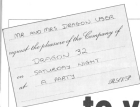 MR AND MRS DRAGON USER
request the pleasure of the Company of
DRAGON 32
on SATURDAY NIGHT
at A PARTY
RSVP